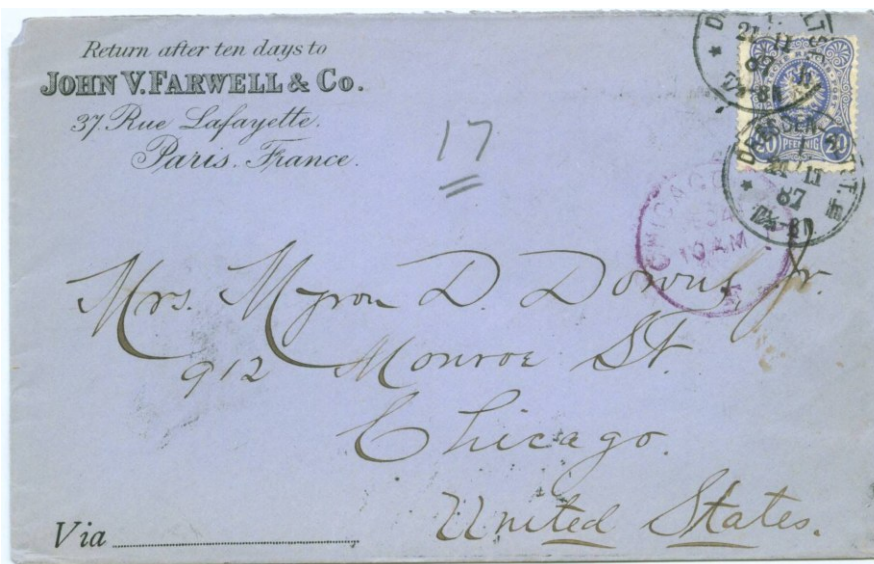 Return after ten days to
JOHN V. FARWELL & Co.
37. Rue Lafayette.
Paris. France.
17
20 PFENNIG 20
DRESDEN
11
87
CHICAGO
10 AM
Mrs. Myron D. Downs, Jr.
912 Monroe St.
Chicago.
United States.
Via